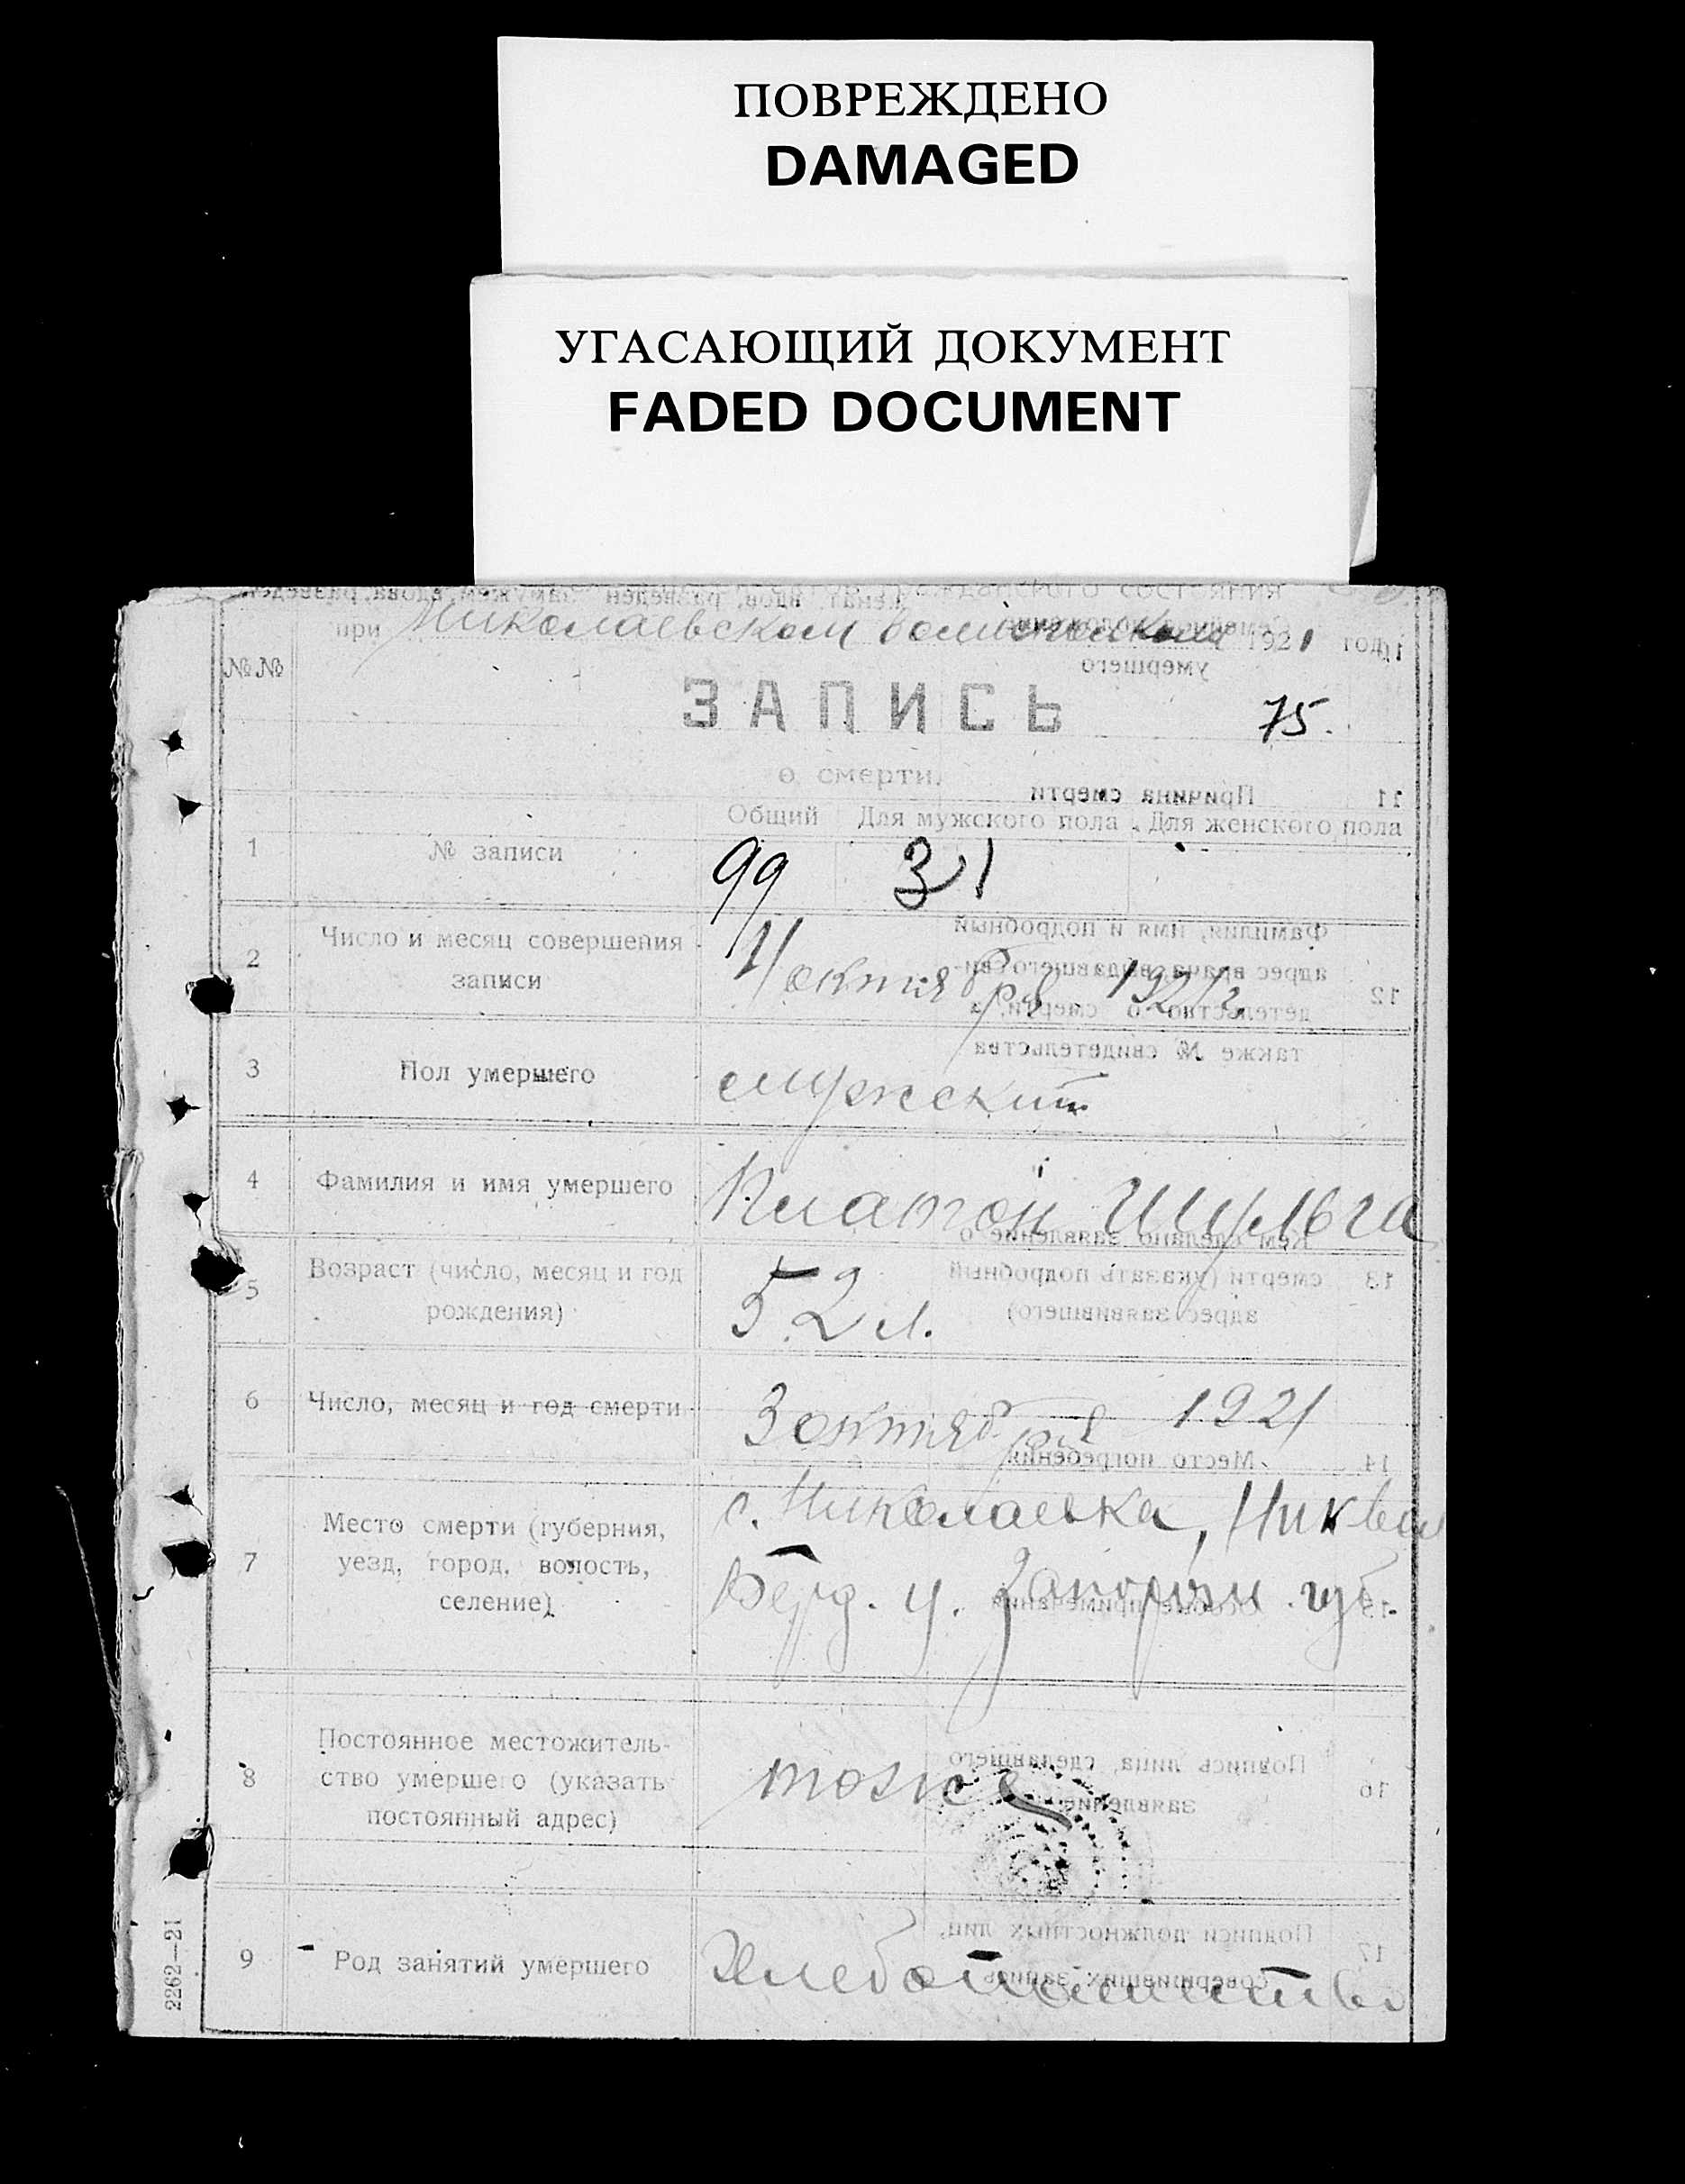 ПОВРЕЖДЕНО
DAMAGED
УГАСАЮЩИЙ ДОКУМЕНТ
FADED DOCUMENT
гражданского состояния
при Николаевском 1921 год
№№
ЗАПИСЬ
75.
о смерти.
Общий Для мужского пола Для женского пола
1 № записи 99 31
2 Число и месяц совершения
записи
октября 1921 г.
3 Пол умершего мужской
4 Фамилия и имя умершего Платон Шульга
5 Возраст (число, месяц и год
рождения)
52 л.
6 Число, месяц и год смерти 3 октября 1921
7 Место смерти (губерния,
уезд, город, волость,
селение)
с. Николаевка, Ник вол
Берд. у. Запорож. губ.
8 Постоянное местожитель-
ство умершего (указать
постоянный адрес)
тоже
9 Род занятий умершего
2262—21
Причина смерти 11
Фамилия, имя и подробный
адрес врача, выдавшего сви-
детельство о смерти, а
также № свидетельства
12
Кем сделано заявление о
смерти (указать подробный
адрес заявившего)
13
Место погребения 14
Особые примечания 15
Подпись лица, сделавшего
заявление
16
Подписи должностных лиц,
совершивших запись
17